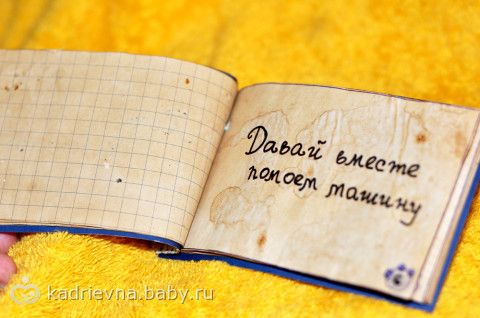 Давай вместе
помоем машину
kadrievna.baby.ru